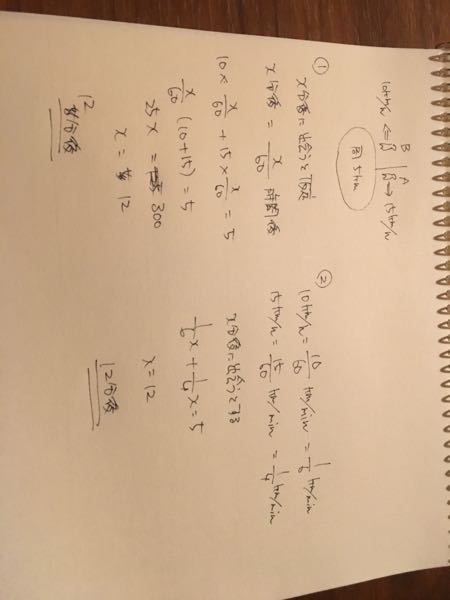 B A
10km/h ⇐ | → 15km/h
周5km
①
x分後に出会うと仮定
x分後 = x/60 時間後
10 × x/60 + 15 × x/60 = 5
x/60 (10+15) = 5
25x = 300
x = 12
12分後
②
10km/h = 10/60 km/min = 1/6 km/min
15km/h = 15/60 km/min = 1/4 km/min
x分後に出会うとする
1/6 x + 1/4 x = 5
x = 12
12分後